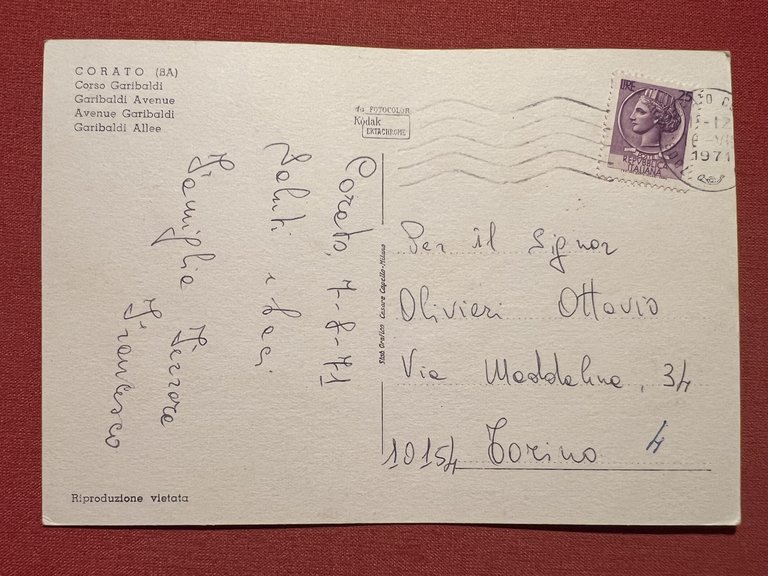 CORATO (BA)
Corso Garibaldi
Garibaldi Avenue
Avenue Garibaldi
Garibaldi Allee
da FOTOCOLOR
Kodak
EKTACHROME
LIRE 25
REPUBBLICA
ITALIANA
1971
Corato, 7-8-71
Saluti e baci
Famiglia Ferrara
Francesco
Stab. Grafico Cesare Capello-Milano
Per il Signor
Olivieri Ottavio
Via Maddalina, 34
10154 Torino 4
Riproduzione vietata